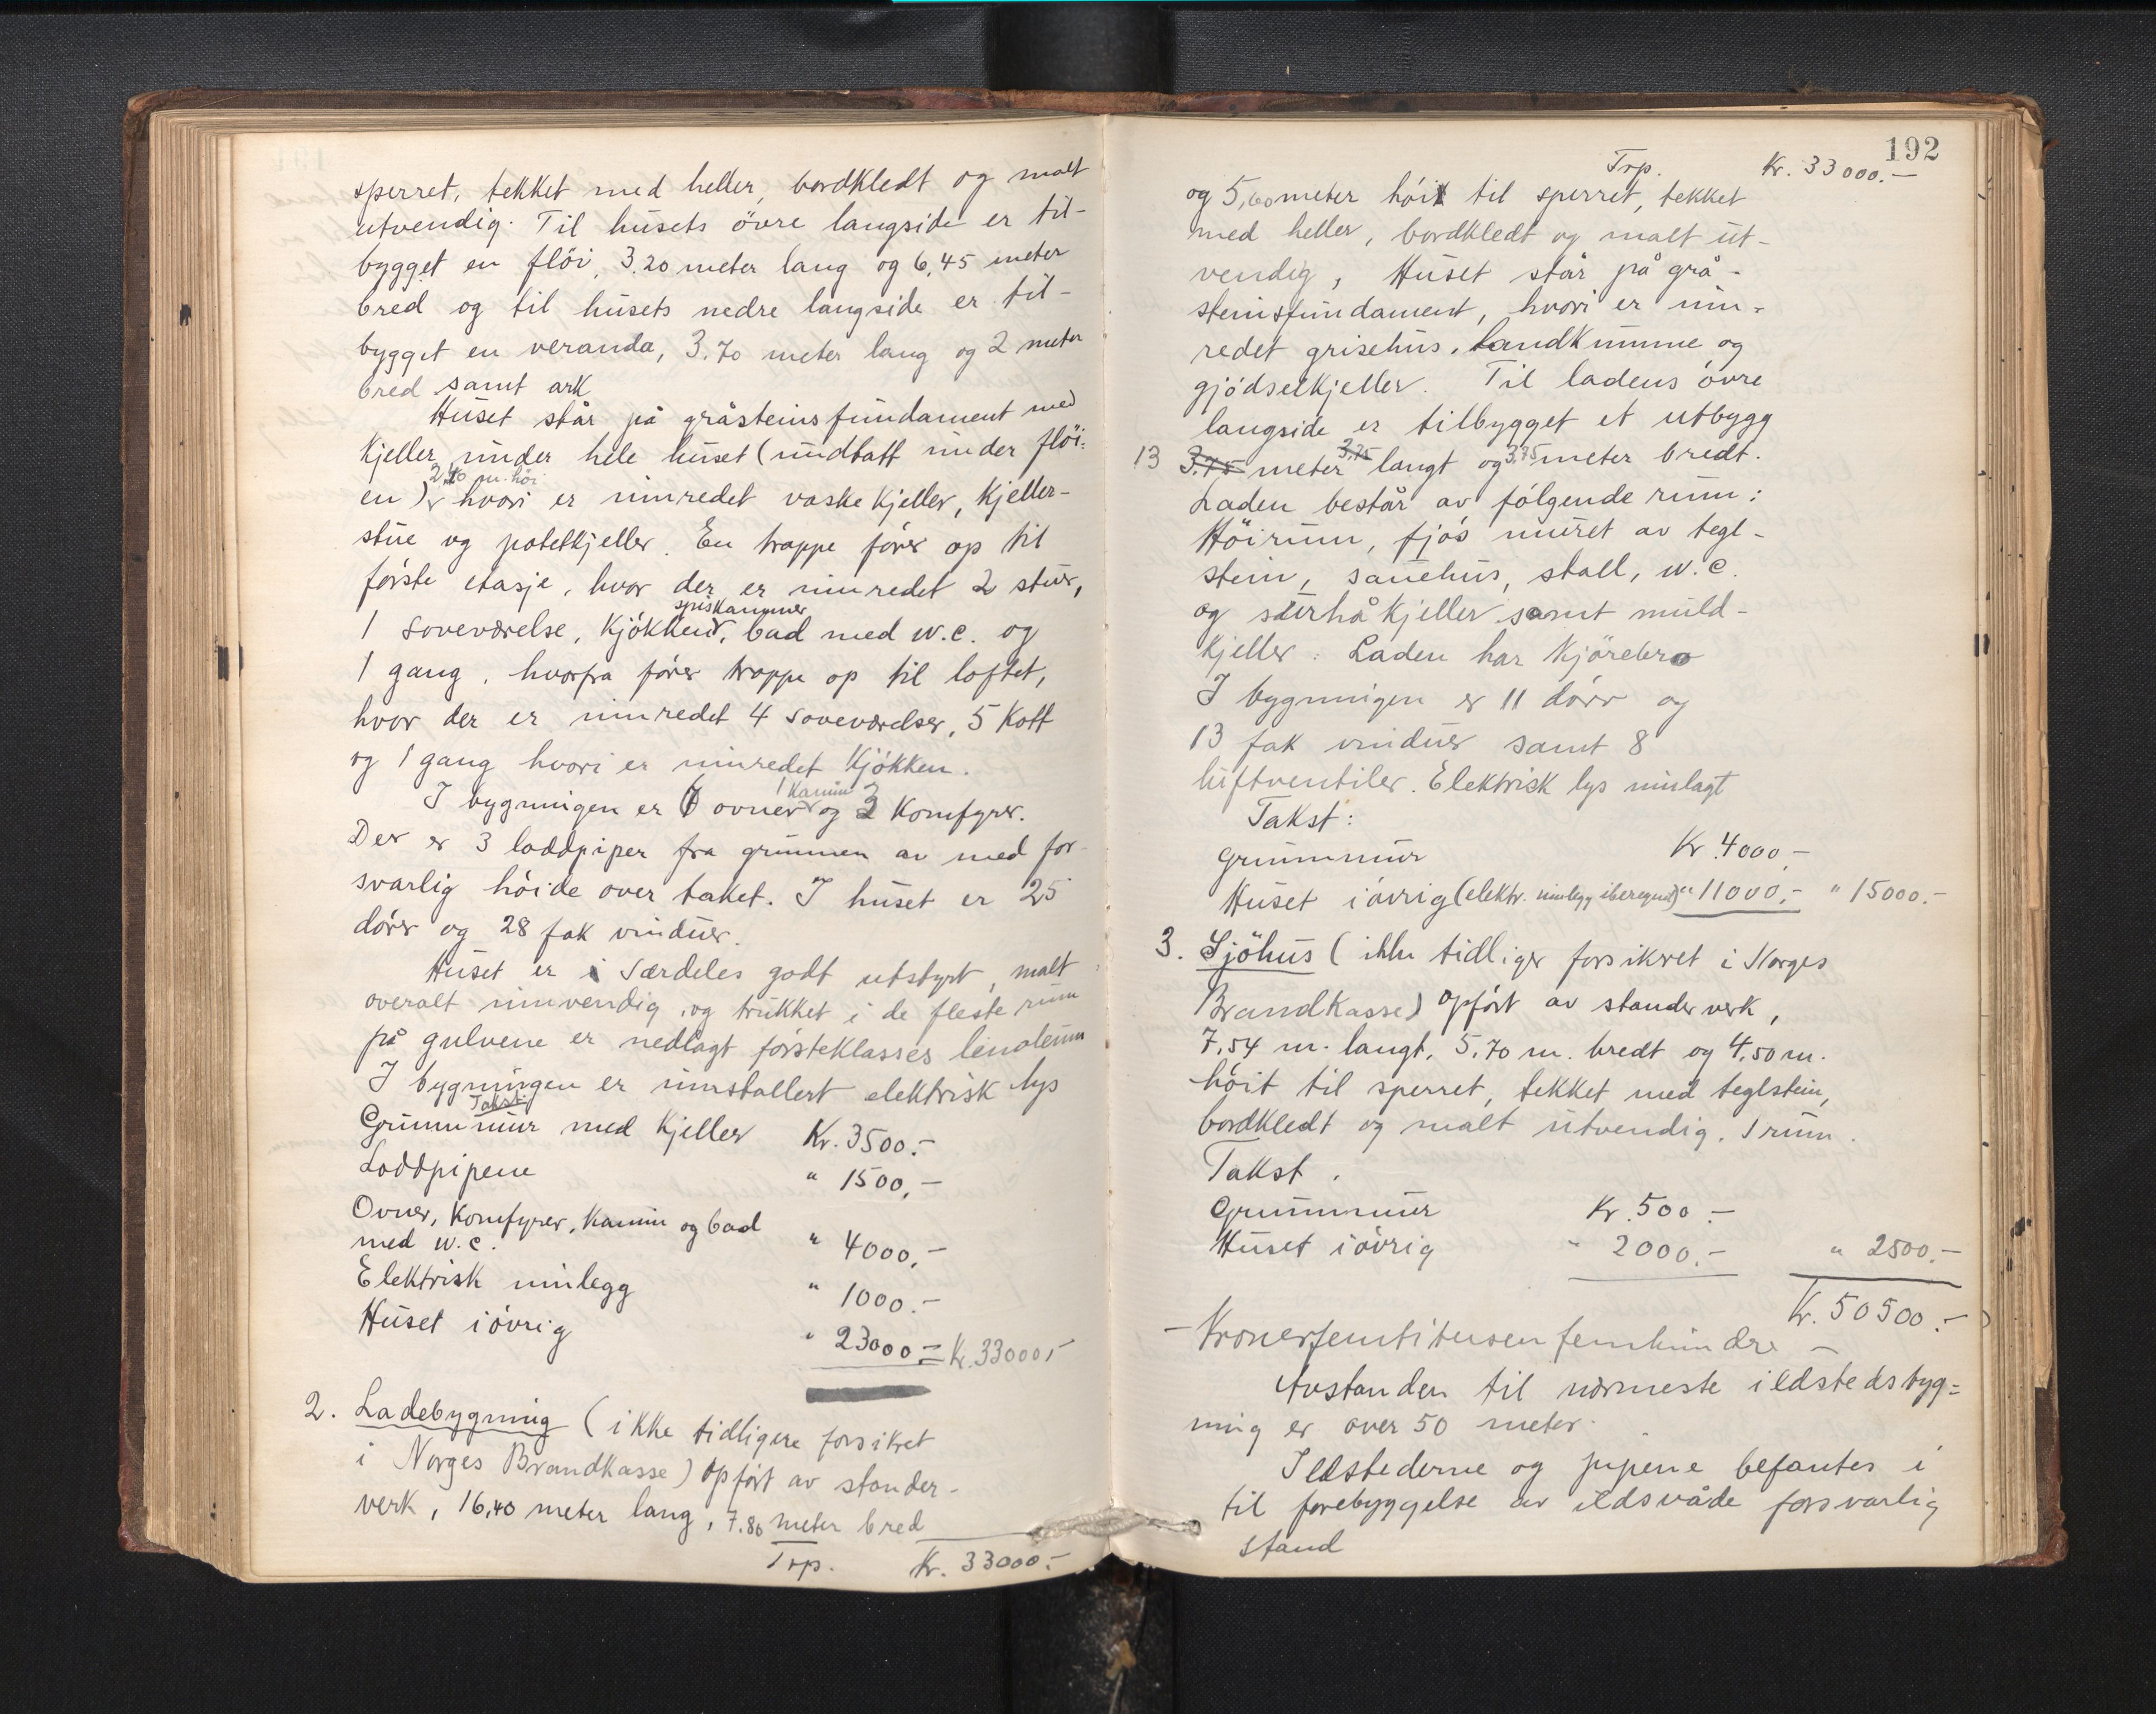 sperret, tekket med heller, bordkledt og malt
utvendig. Til husets övre langside er til-
bygget en flöi, 3.20 meter lang og 6,45 meter
bred og til husets nedre langside er til-
bygget en veranda, 3.70 meter lang og 2 meter
bred samt ark
Huset står på gråsteinsfundament med
Kjeller under hele huset (undtatt under flöi=
2,40 m. höi
en) hvori er innredet vaskekjeller, kjeller-
stue og potetkjeller. En trappe förer op til
förste etasje, hvor der er innredet 2 stuer,
spiskammer
1 soveværelse, kjökken, bad med w.c. og
1 gang, hvorfra förer trappe op til loftet,
hvor der er innredet 4 soveværelser, 5 Kott
og 1 gang hvori er innredet Kjökken.
1 Kamin
I bygningen er 7 ovner og 3 Komfyrer.
Der er 3 loddpiper fra grunnen av med for-
svarlig höide over taket. I huset er 25
dörer og 28 fak vinduer.
Huset er i særdeles godt utstyrt, malt
overalt innvendig, og trukket i de fleste rum
på gulvene er nedlagt försteklasses linoleum
I bygningen er innstallert elektrisk lys
Takst:
Grunnmur med Kjeller Kr. 3500.-
Loddpipene " 1500,-
Ovner, Komfyrer, Kamin og bad
med w.c. " 4000,-
Elektrisk innlegg " 1000.-
Huset iövrig " 23000 = Kr. 33000,-
2. Ladebygning (ikke tidligere forsikret
i Norges Brandkasse) opfört av stender-
verk, 16,40 meter lang, 7.80 meter bred
Trp. Kr. 33000.-
192
Trp. Kr. 33000.-
og 5,60 meter höi til sperret, tekket
med heller, bordkledt og malt ut-
vendig, Huset står på grå-
steinsfundament, hvori er inn-
redet grisehus, landkumme og
gjödselkjeller. Til ladens övre
langside er tilbygget et utbygg
13 3,75 meter 3,75 langt og 3,75 meter bredt.
Laden består av fölgende rum:
Höirum, fjös muret av tegl-
stein, sauehus, stall, w.c.
og surhåkjeller samt muld-
kjeller. Laden har Kjörebro
I bygningen er 11 dörr og
13 fak vinduer samt 8
luftventiler. Elektrisk lys innlagt
Takst:
Grunnmur Kr. 4000,-
Huset iövrig (elektr. innlegg iberegnet) " 11000,- " 15000.-
3. Sjöhus (ikke tidliger forsikret i Norges
Brandkasse) opfört av stenderverk,
7,54 m. langt, 5,70 m. bredt og 4,50 m.
höit til sperret, tekket med teglstein,
bordkledt og malt utvendig. 1 rum.
Takst.
Grunnmur Kr. 500.-
Huset iövrig " 2000.- " 2500.-
Kr. 50500.-
- Kronerfemtitusenfemhundre -
Avstanden til nærmeste ildstedsbyg=
ning er over 50 meter.
Ildstederne og pipene befantes i
til forebyggelse av ildsvåde forsvarlig
stand